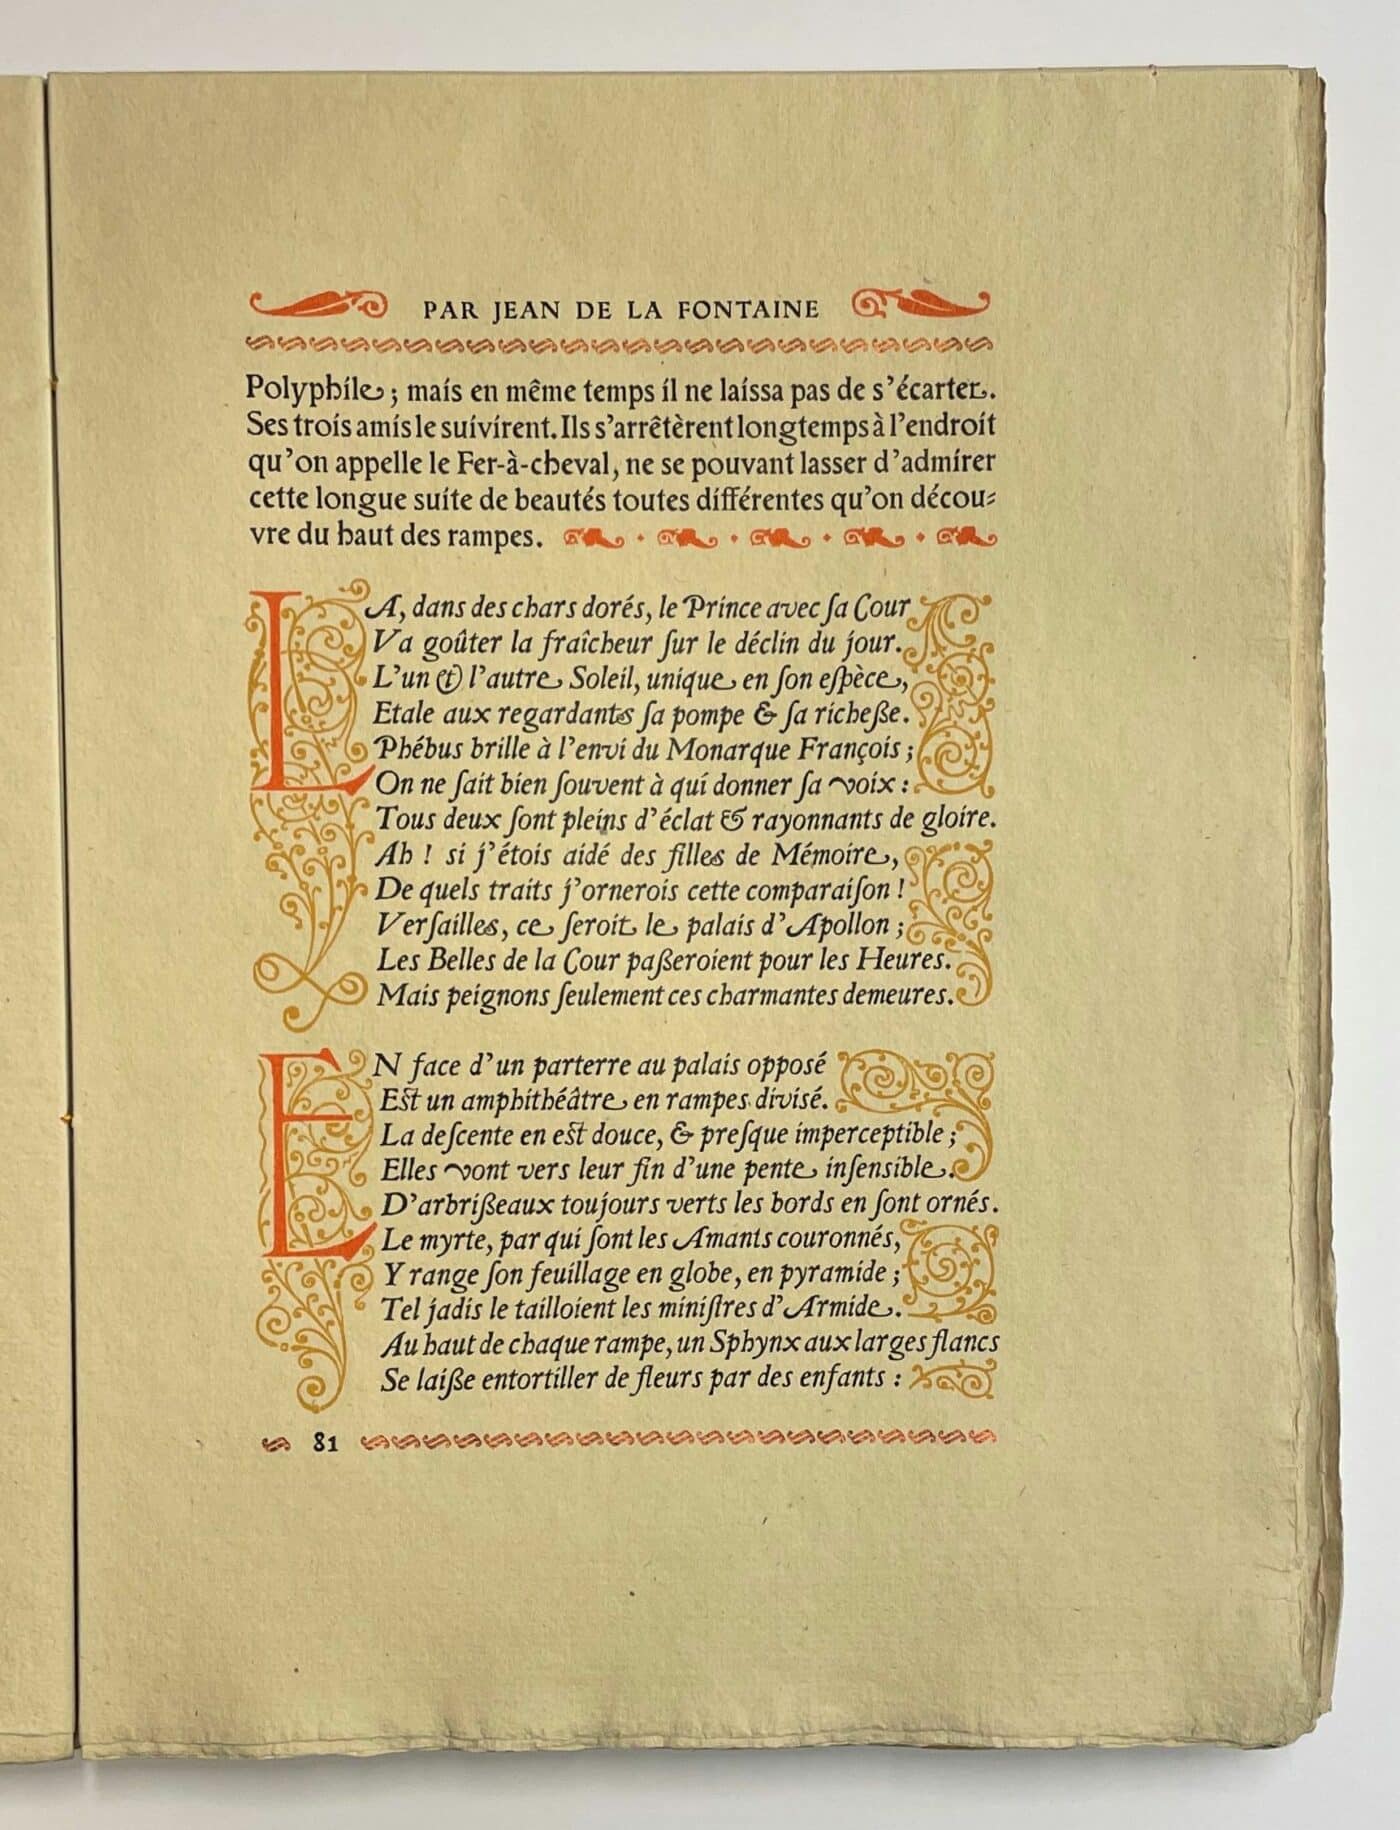 PAR JEAN DE LA FONTAINE
Polyphile ; mais en même temps il ne laissa pas de s’écarter.
Ses trois amis le suivirent. Ils s’arrêtèrent longtemps à l’endroit
qu’on appelle le Fer-à-cheval, ne se pouvant lasser d’admirer
cette longue suite de beautés toutes différentes qu’on décou-
vre du haut des rampes.
LA, dans des chars dorés, le Prince avec ſa Cour
Va goûter la fraîcheur ſur le déclin du jour.
L’un & l’autre Soleil, unique en ſon eſpèce,
Etale aux regardants ſa pompe & ſa richeße.
Phébus brille à l’envi du Monarque François ;
On ne ſait bien ſouvent à qui donner ſa voix :
Tous deux ſont pleins d’éclat & rayonnants de gloire.
Ah ! si j’étois aidé des filles de Mémoire,
De quels traits j’ornerois cette comparaiſon !
Verſailles, ce ſeroit le palais d’Apollon ;
Les Belles de la Cour paßeroient pour les Heures.
Mais peignons ſeulement ces charmantes demeures.
EN face d’un parterre au palais opposé
Est un amphithéâtre en rampes divisé.
La deſcente en est douce, & preſque imperceptible ;
Elles vont vers leur fin d’une pente inſensible.
D’arbrißeaux toujours verts les bords en ſont ornés.
Le myrte, par qui ſont les Amants couronnés,
Y range ſon feuillage en globe, en pyramide ;
Tel jadis le tailloient les miniſtres d’Armide.
Au haut de chaque rampe, un Sphynx aux larges flancs
Se laiße entortiller de fleurs par des enfants :
81